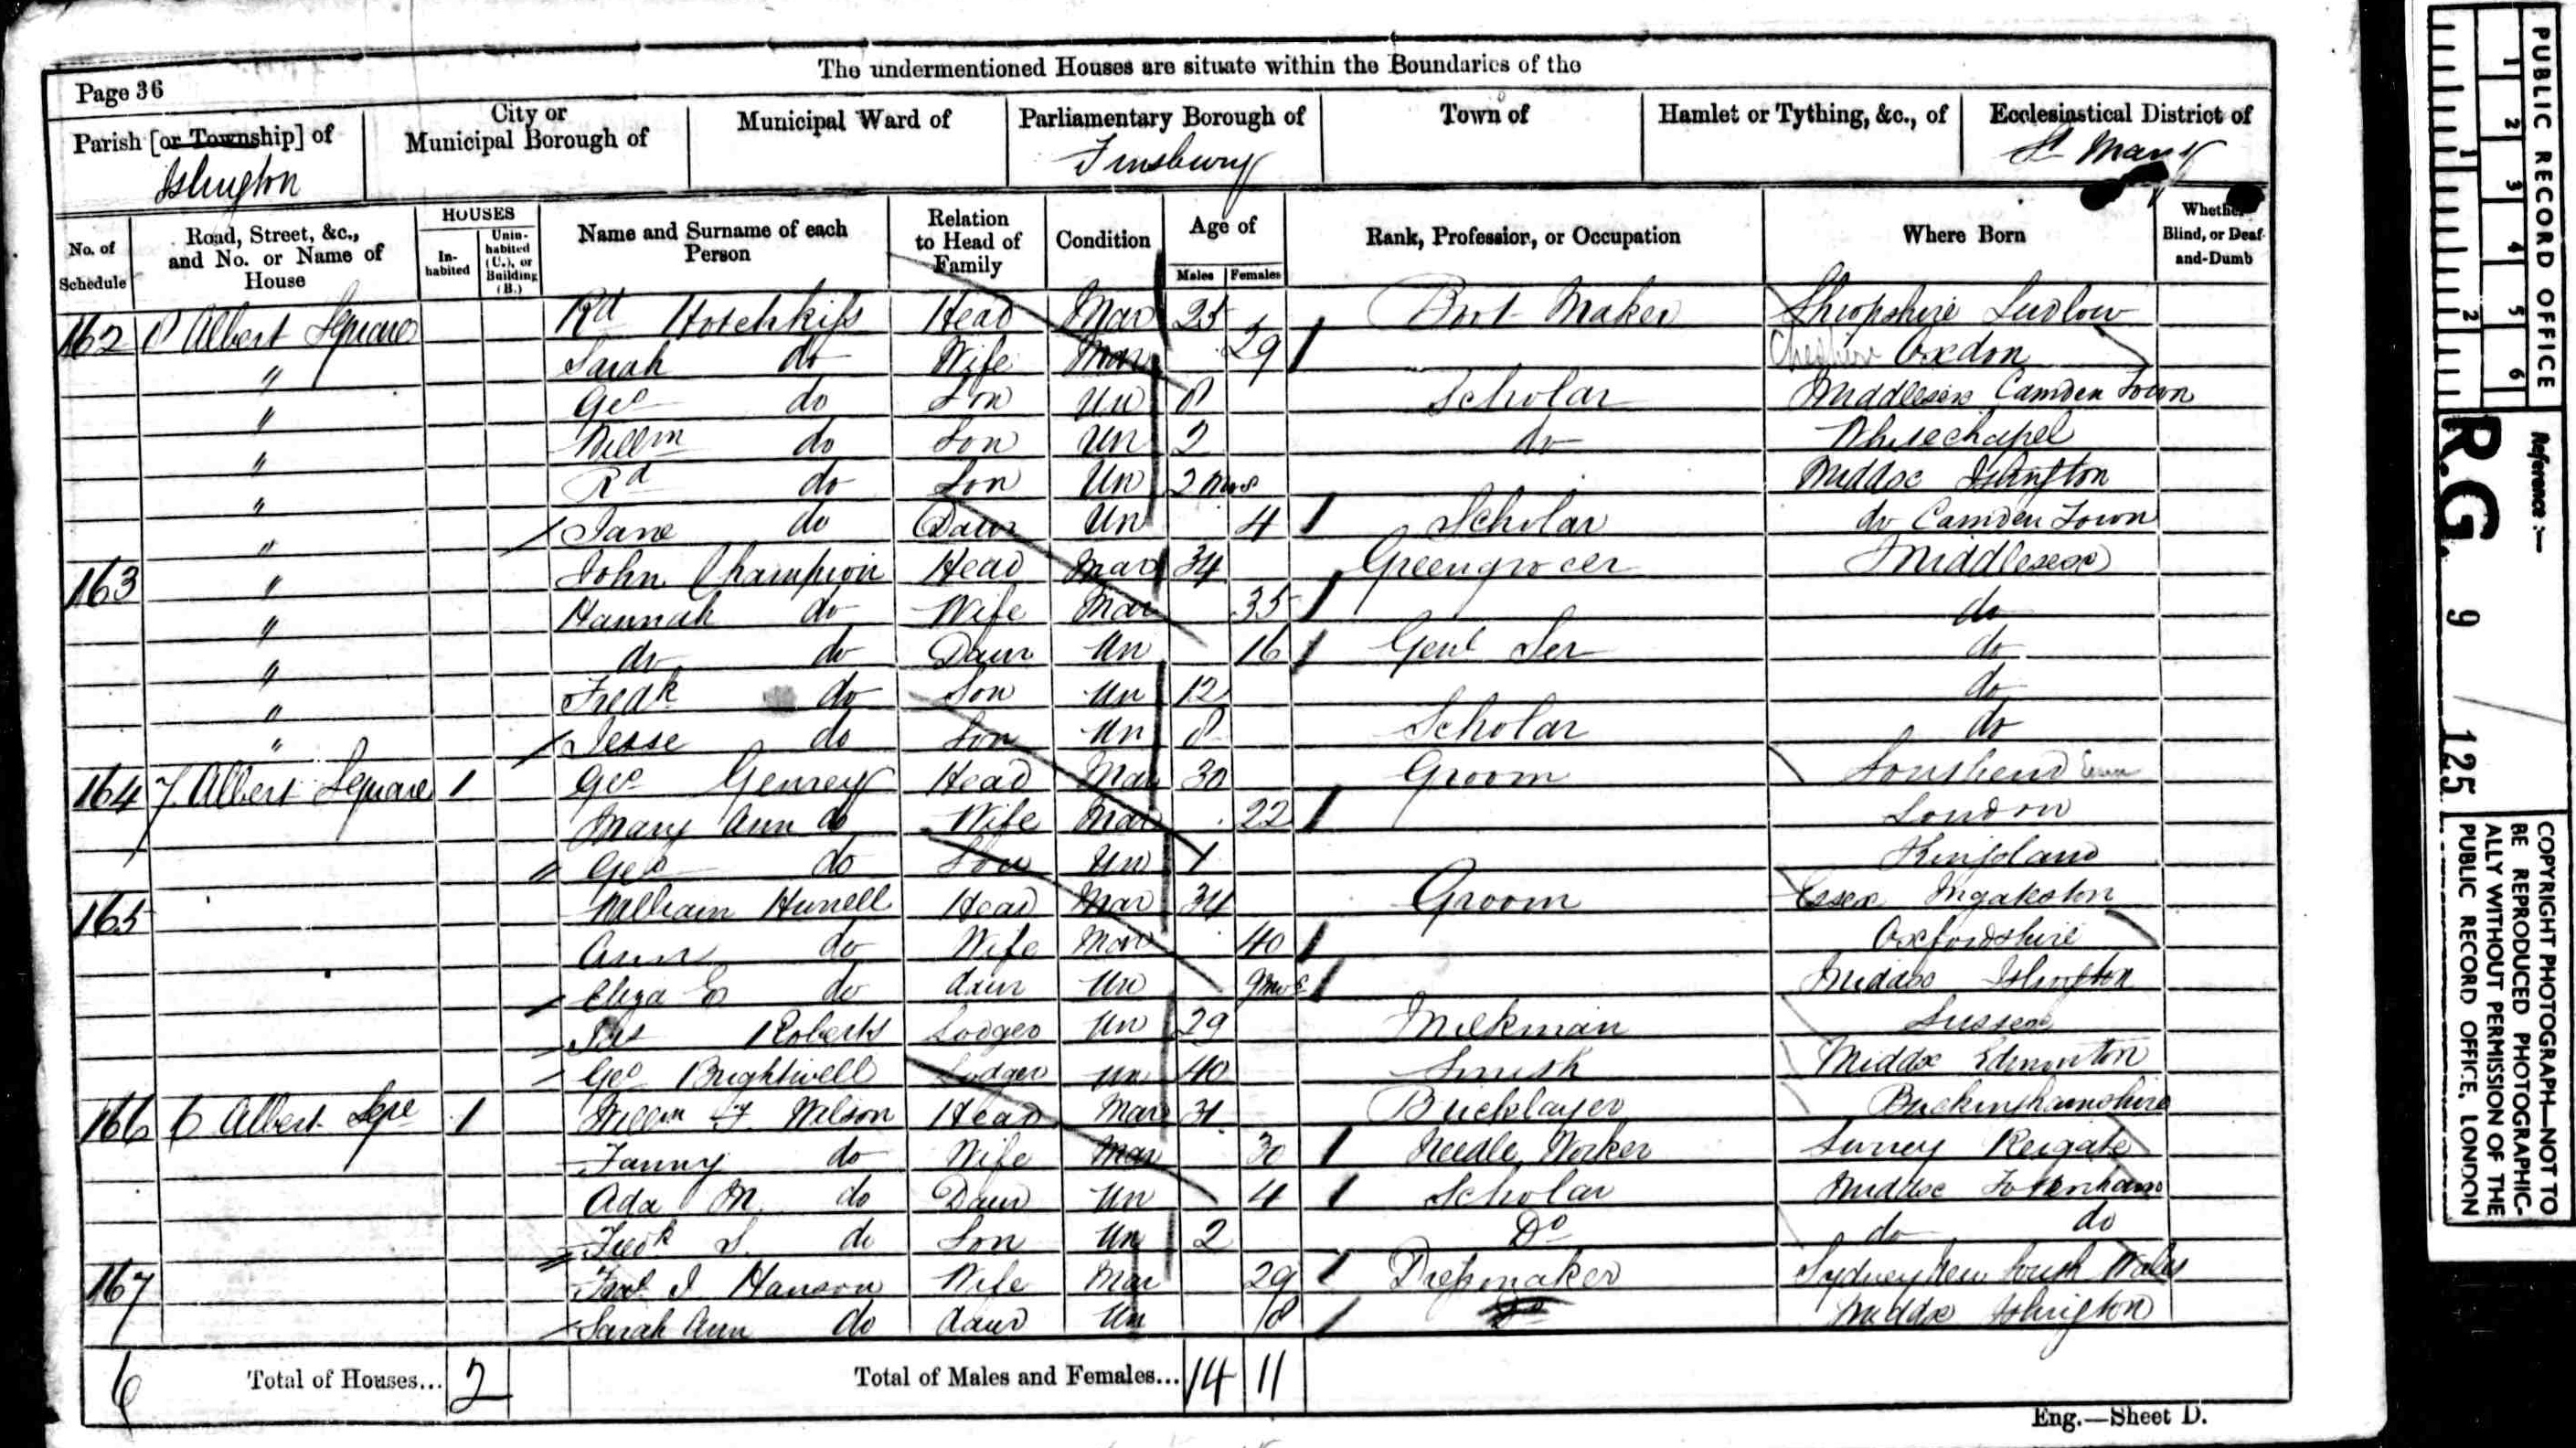 The undermentioned Houses are situate within the Boundaries of the
Page 36
Parish [or Township] of
Islington
City or
Municipal Borough of
Municipal Ward of
Parliamentary Borough of
Finsbury
Town of
Hamlet or Tything, &c., of
Ecclesiastical District of
St Mary
No. of
Schedule
Road, Street, &c.,
and No. or Name of
House
HOUSES
In-
habited
Unin-
habited
(U.), or
Building
(B.)
Name and Surname of each
Person
Relation
to Head of
Family
Condition
Age of
Males
Females
Rank, Profession, or Occupation
Where Born
Whether
Blind, or Deaf-
and-Dumb
162 8 Albert Square Rd Hotchkiss Head Mar 25 Boot Maker Shropshire Ludlow
" Sarah do Wife Mar 29 Cheshire
" Geo do Son Un 8 Scholar Middlesex Camden Town
" Willm do Son Un 2 do Whitechapel
" Rd do Son Un 2 Mos Middx Islington
" Jane do Daur Un 4 Scholar do Camden Town
163 " John Champion Head Mar 34 Greengrocer Middlesex
" Hannah do Wife Mar 35 do
" do do Daur Un 16 Genl Ser do
" Fredk do Son Un 12 do
" Jesse do Son Un 8 Scholar do
164 7 Albert Square 1 Geo Head Mar 30 Groom Southend
Mary Ann do Wife Mar 22 London
Geo do Son Un 1 Kingsland
165 William Hunell Head Mar 34 Groom Essex Ingakston
Ann do Wife Mar 40 Oxfordshire
Eliza E do daur Un 9 mos Middx Islington
Roberts Lodger Un 29 Milkman Sussex
Geo Brightwell Lodger Un 40 Smith Middx Edmonton
166 6 Albert Sqre 1 Willm Wilson Head Mar 31 Bricklayer Buckinghamshire
Fanny do Wife Mar 30 Needle Worker Surrey Reigate
Ada M. do Daur Un 4 Scholar Middx Totenham
Fredk S. do Son Un 2 Do do do
167 J Hanson Wife Mar 29 Dressmaker Sydney New South Wales
Sarah Ann do daur Un 8 Middx Islington
6 Total of Houses... 2 Total of Males and Females... 14 11
Eng.—Sheet D.
PUBLIC RECORD OFFICE
1 2 3 4 5 6
1 2
Reference :—
R.G. 9 / 125
COPYRIGHT PHOTOGRAPH—NOT TO
BE REPRODUCED PHOTOGRAPHIC-
ALLY WITHOUT PERMISSION OF THE
PUBLIC RECORD OFFICE, LONDON